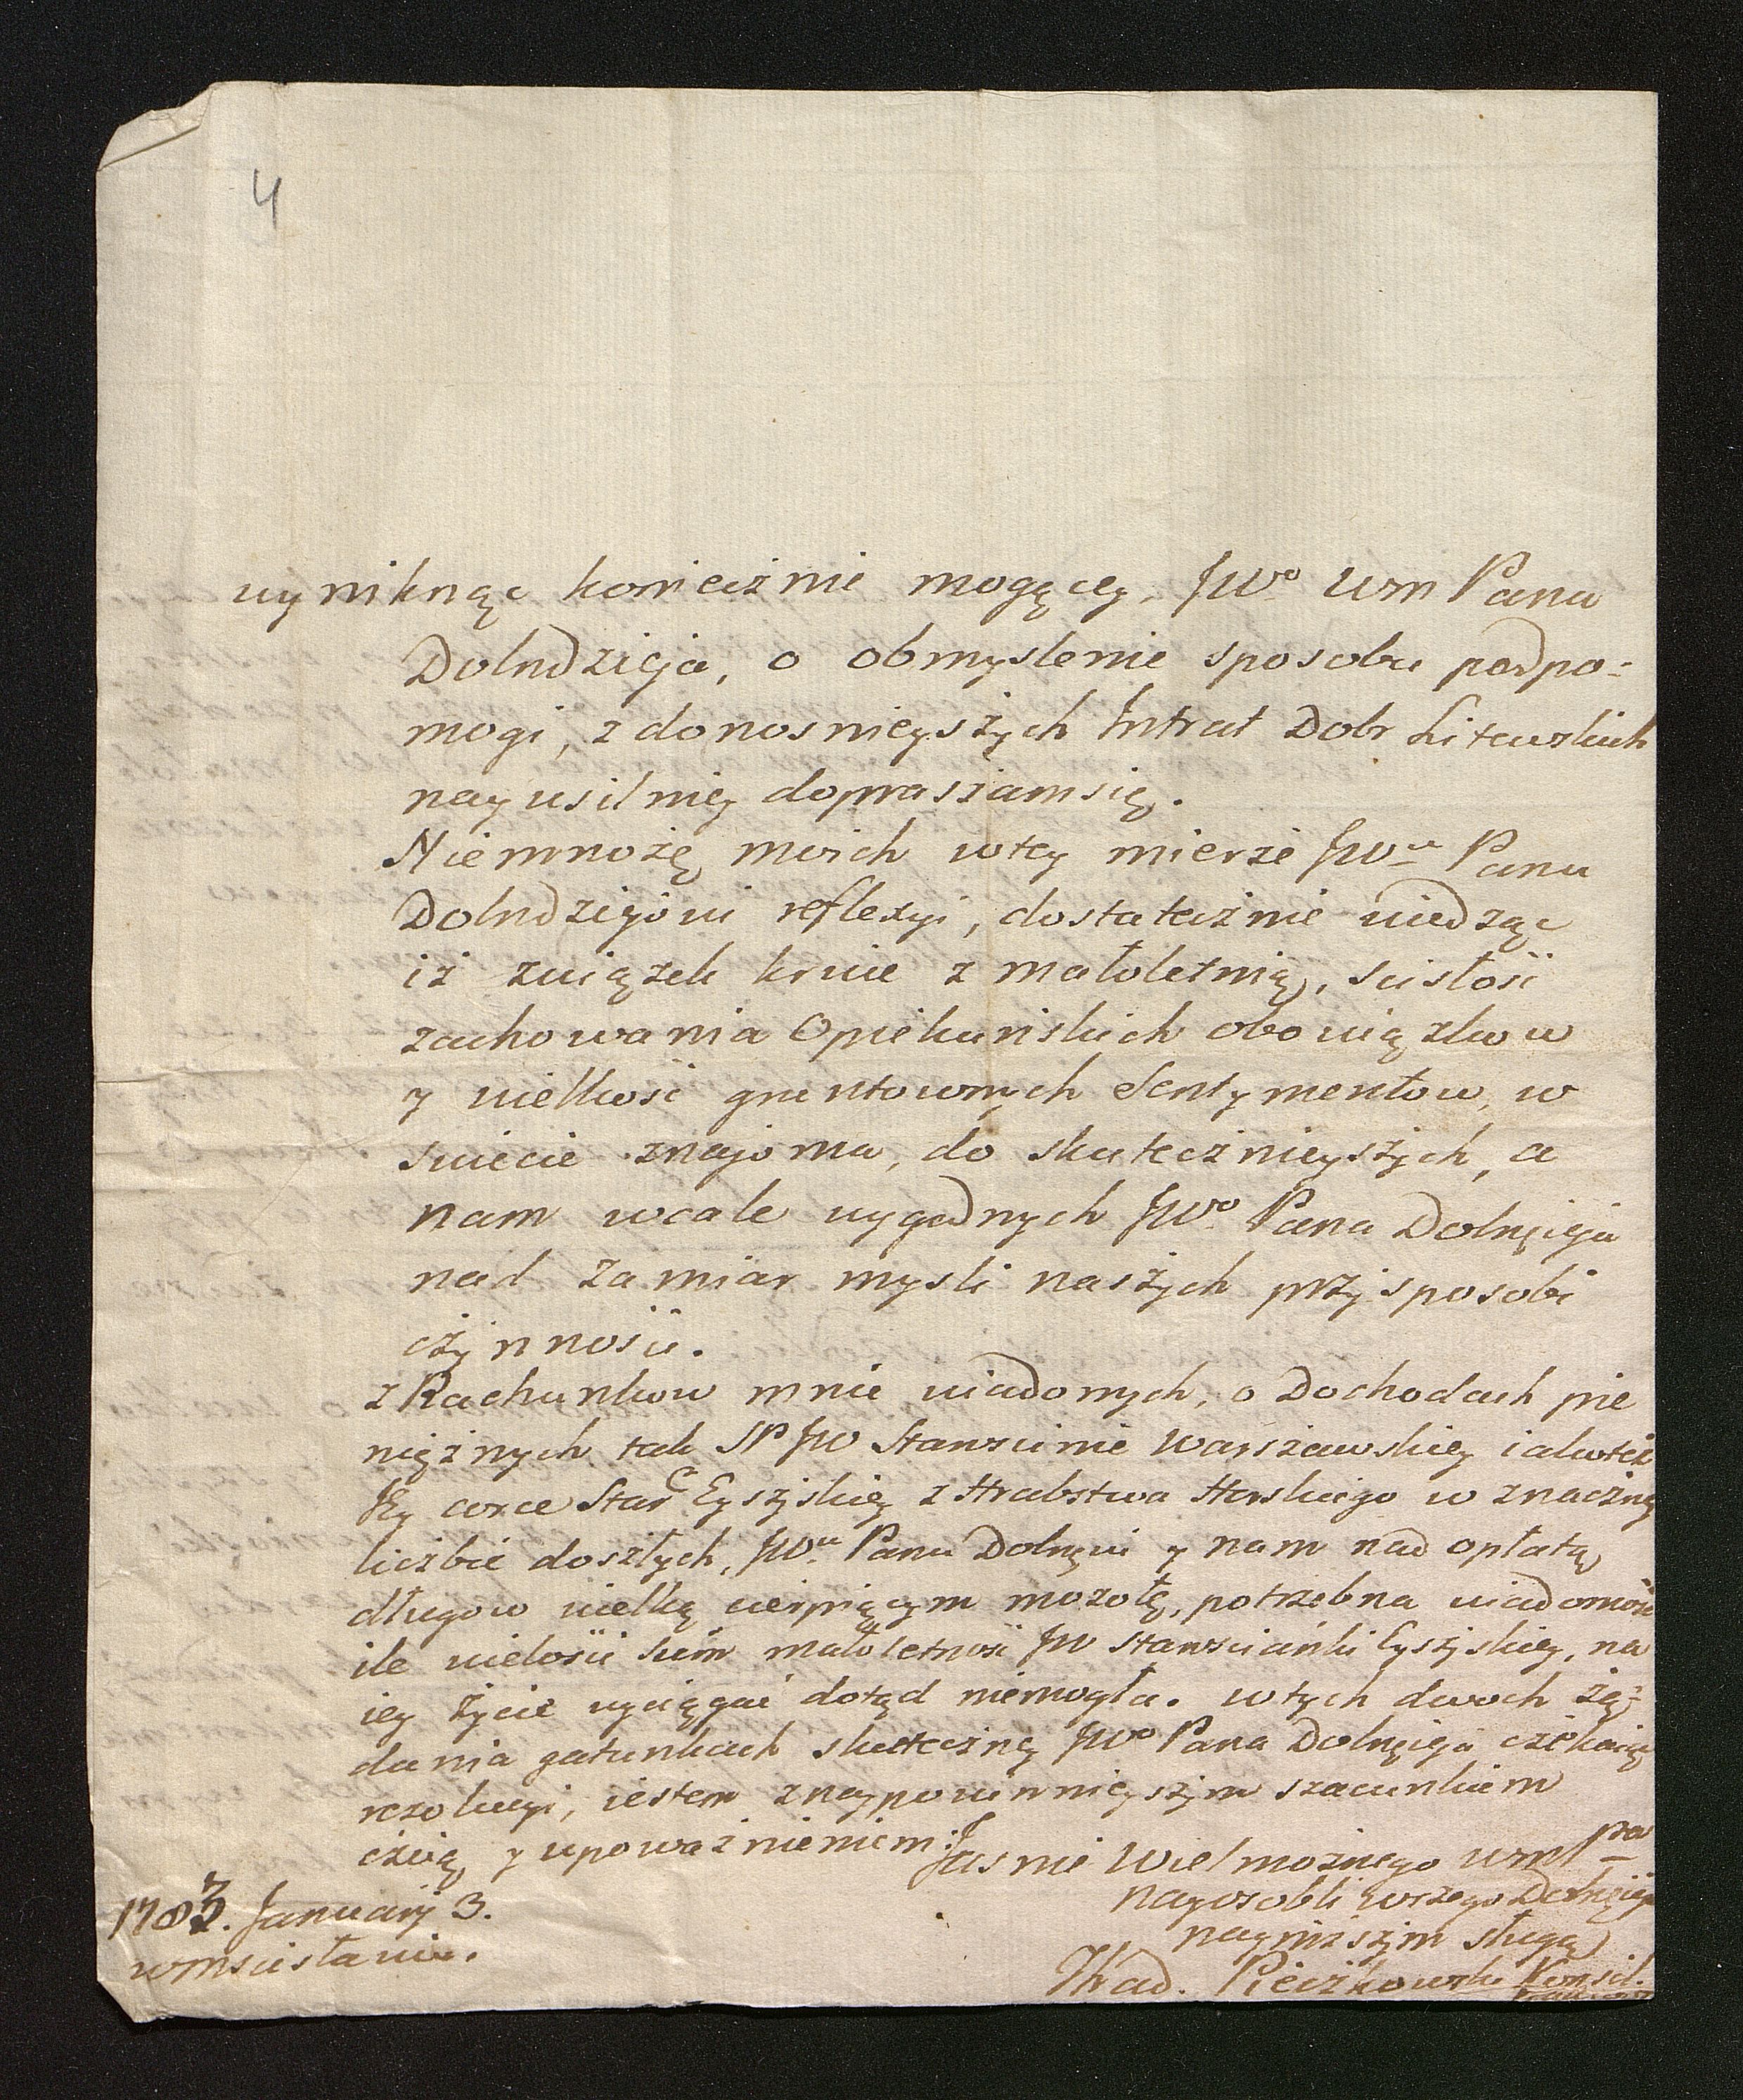 4
wyniknąc koniecznie mogącey, JWo Wm Pana
Dolndzieja, o obmyslenie sposobu podpo=
mogi, z donosnieyszych Intrat Dobr Litewskich
nayusilniey dopraszamsię.
Niemnożę moich wtey mierze JWu Panu
Dolndziejowi reflexyi, dostatecznie wiedząc
iż związek krwie z małoletnią, scisłość
zachowania Opiekuńskich obowiązkow
y wielkość gruntownych Sentymentow, w
swiecie znajoma, do skutecznieyszych, a
nam wcale wygodnych JWo Pana Dolnzieja
nad zamiar mysli naszych przysposobi
czynnośći.
z Rachunkow mnie wiadomych, o Dochodach pie
niężnych tak SP JW Starościnie Warszawskiey iakoteż
Jey corce Star Eyszyskiey z Hrabstwa Horskiego w znaczney
liczbie doszłych, JWu Panu Dolnzwi y nam nad opłatą
długow wielką cierpiącym mozołę, potrzebna wiadomość
ile wielości sum małoletność JW Starościanki Eyszyskiey, na
iey życie wyciągać dotąd niemogła. w tych dwoch żą=
dania gatunkach skuteczney JWo Pana Dolnzieja czekaiąc
rezolucyi, iestem z naypowinnieyszym szacunkiem
czcią y upoważnieniem.
Jasnie Wielmożnego Wm Pna
nayosobliwszego Dolnzieja
nayniższym sługą
Pieczkowski Konsil.
1783. Januarij 3.
w Mscisławiu.